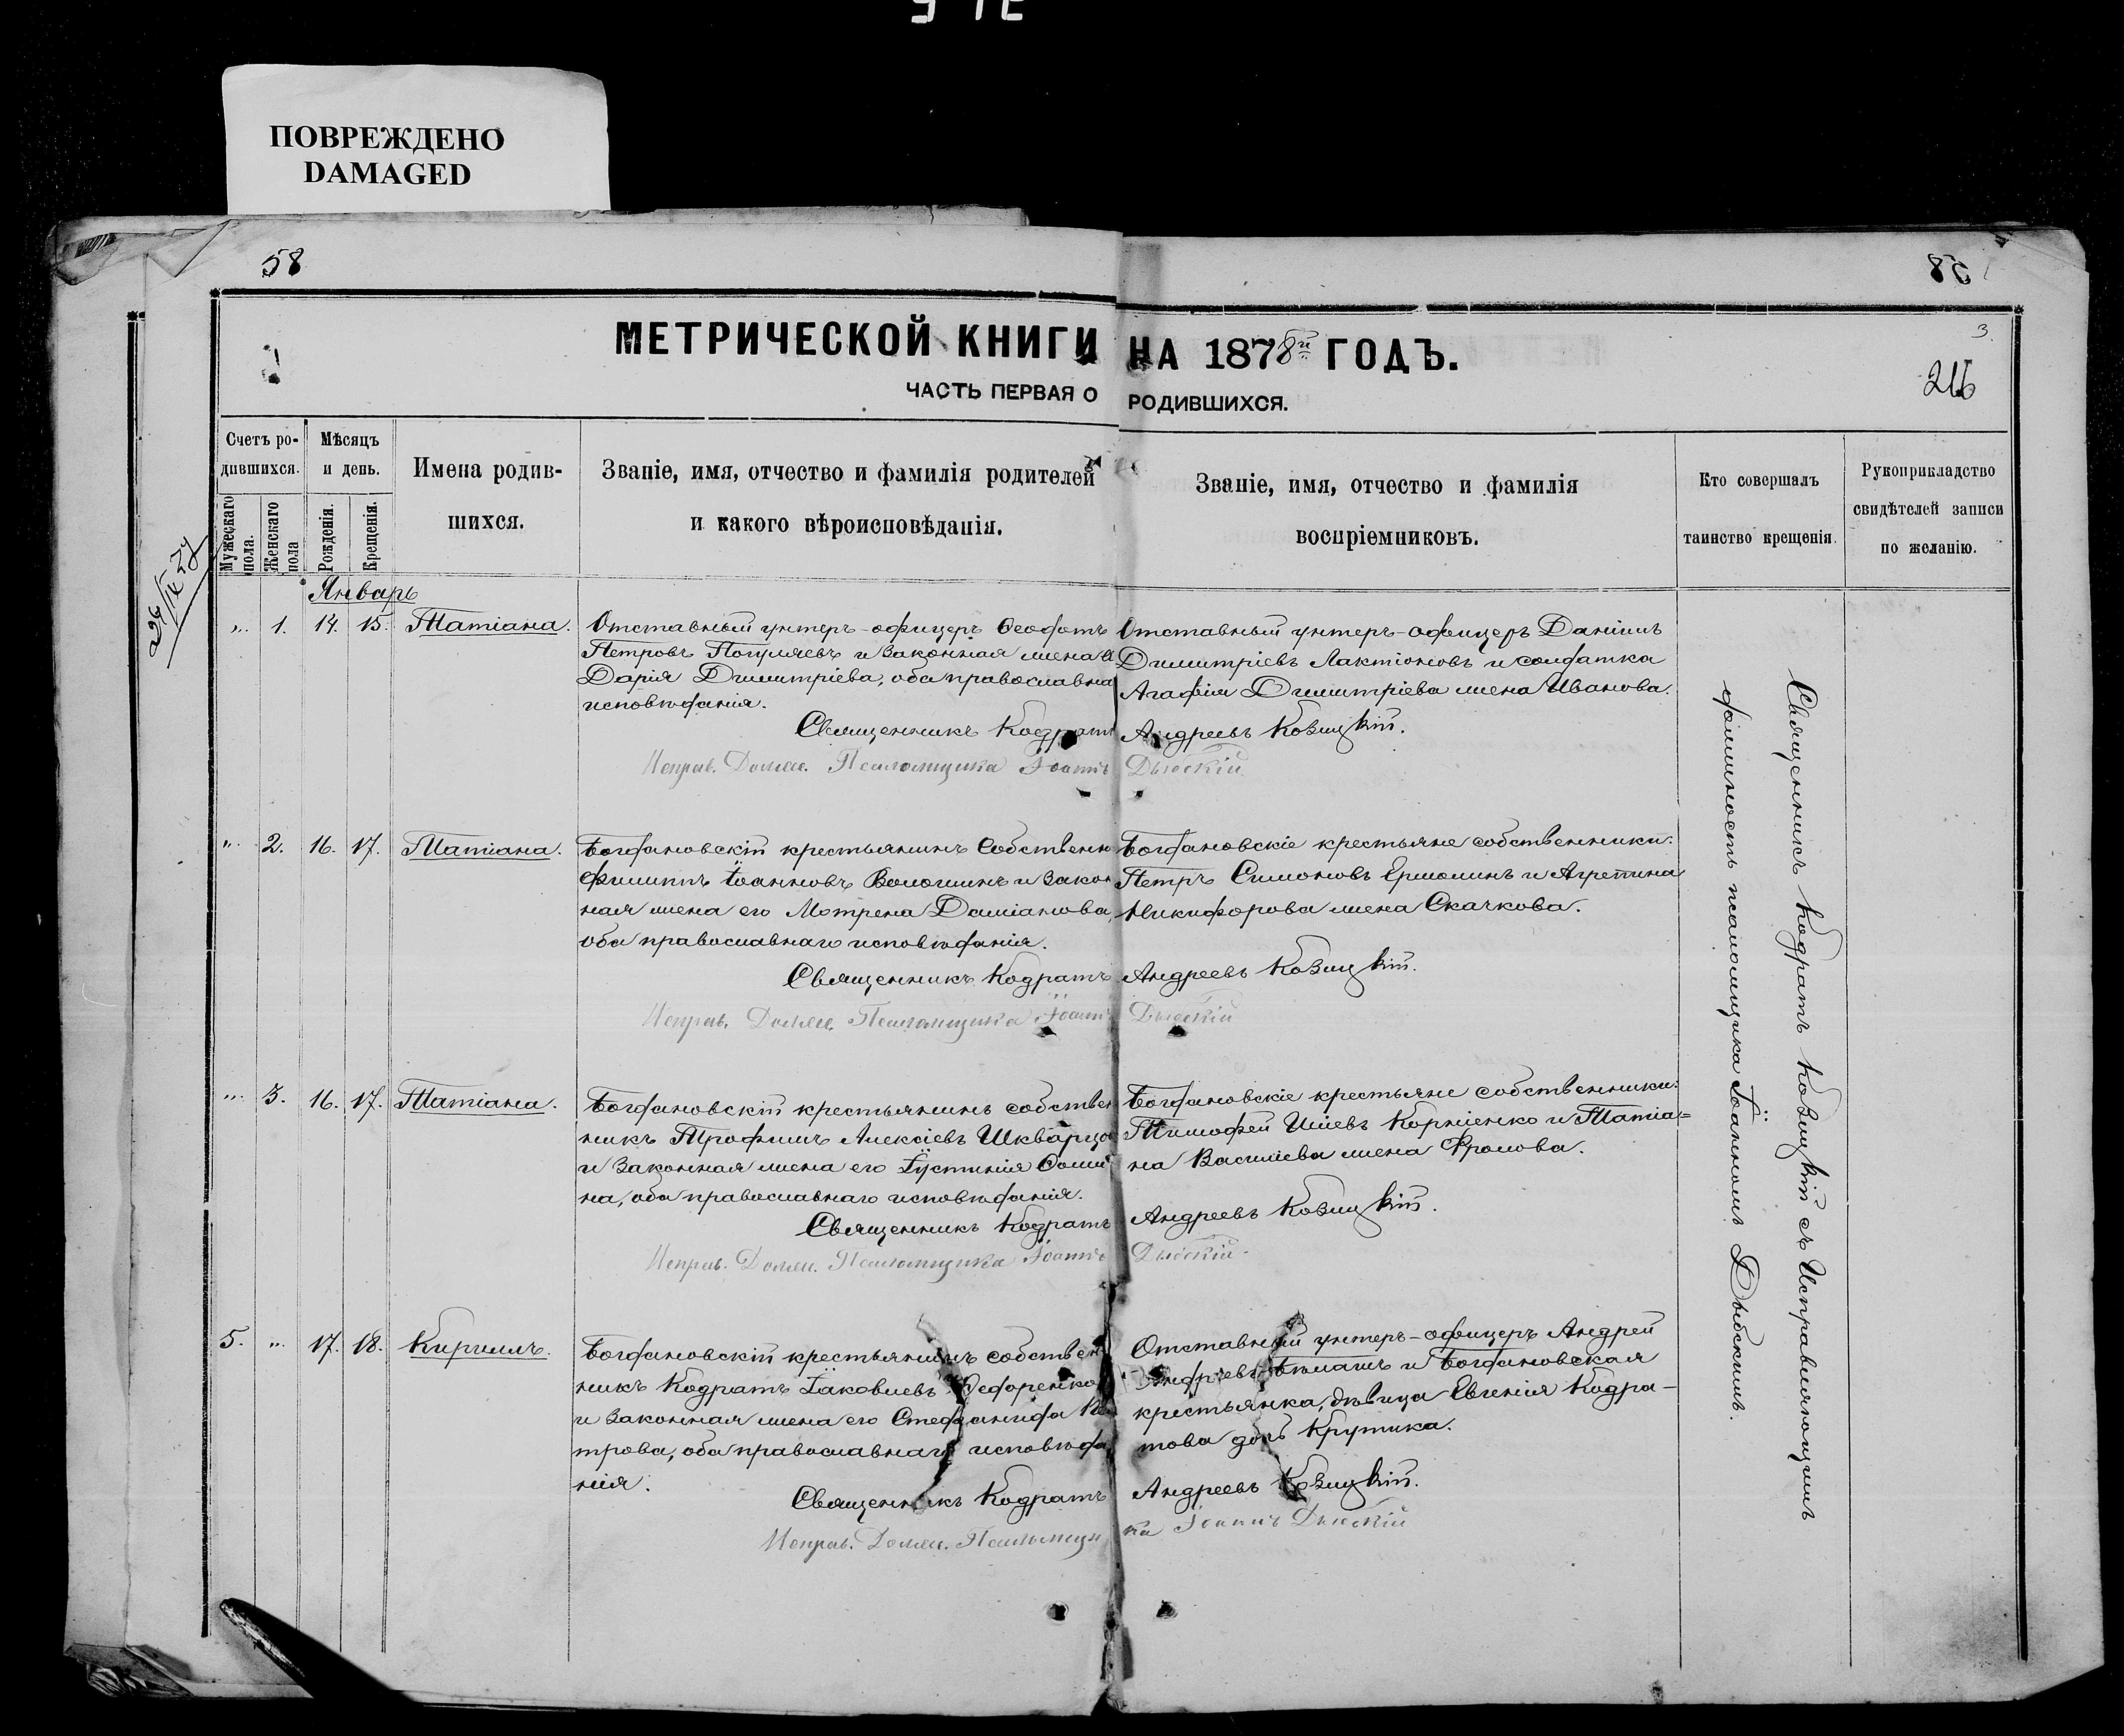 ПОВРЕЖДЕНО
DAMAGED
58
58
МЕТРИЧЕСКОЙ КНИГИ НА 1878й ГОДЪ.
ЧАСТЬ ПЕРВАЯ О РОДИВШИХСЯ.
3
Счетъ ро-
дившихся.
Мужескаго пола.
Женскаго пола
Мѣсяцъ
и день.
Рожденія.
Крещенія.
Имена родив-
шихся.
Званіе, имя, отчество и фамилія родителей
и какого вѣроисповѣданія.
Званіе, имя, отчество и фамилія
воспріемниковъ.
Кто совершалъ
таинство крещенія.
Рукоприкладство
свидѣтелей записи
по желанію.
Январь
„ 1. 14. 15. Татіана.
Отставный унтеръ-офицеръ Ѳеодотъ
Петровъ и законная жена
Дарія Димитріева, оба православна
исповѣданія.
Отставный унтеръ-офицеръ Даніилъ
Димитріевъ Лактіоновъ и солдатка
Агафія Димитріева жена Иванова.
Священникъ Кодратъ Андреевъ Козицкій.
Исправ. Должн. Псаломщика Іоаннъ Дыбскій
„ 2. 16. 17. Татіана.
Богдановскій крестьянинъ собственн
Филиппъ Іоанновъ Волошинъ и закон
ная жена его Мотрена Даміанова,
оба православнаго исповѣданія.
Богдановскіе крестьяне собственники:
Петръ Симоновъ Ермолинъ и Агрепина
Никифорова жена Скачкова.
Священникъ Кодратъ Андреевъ Козицкій.
Исправ. Должн. Псаломщика Іоаннъ Дыбскій
„ 3. 16. 17. Татіана.
Богдановскій крестьянинъ собствен
никъ Трофимъ Алексіевъ
и законная жена его Іустинія
на, оба православнаго исповѣданія.
Богдановскіе крестьяне собственники:
Тимофей Иліевъ Корніенко и Татіа=
на Василіева жена Фролова.
Священникъ Кодратъ Андреевъ Козицкій.
Исправ. Должн. Псаломщика Іоаннъ Дыбскій
5. „ 17. 18. Кириллъ.
Богдановскій крестьянинъ собствен
никъ Кодратъ Іаковлевъ Ѳедоренко
и законная жена его Стефанида
трова, оба православнаго исповѣда
нія.
Отставный унтеръ-офицеръ Андрей
и Богдановская
крестьянка, дѣвица Евгенія Кодра-
това дочь Крутика.
Священникъ Кодратъ Андреевъ Козицкій.
Исправ. Должн. Псаломщика Іоаннъ Дыбскій
Священникъ Кодратъ Козицкій съ Исправляющимъ
должность псаломщика Іоанномъ Дыбскимъ.